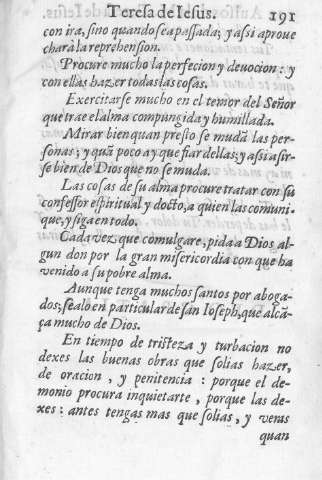 Teresa de Iesus. 191
con ira, sino quando sea passada; y assi aproue
chará la reprehension.
Procure mucho la perfecion y deuocion: y
con ellas hazer todas las cosas.
Exercitarse mucho en el temor del Señor
que trae el alma compungida y humillada.
Mirar bien quan presto se mudã las per-
sonas; y quã poco ay que fiar dellas; y assi asir-
se bien de Dios que no se muda.
Las cosas de su alma procure tratar con su
confessor espiritual y docto, a quien las comuni-
que, y siga en todo.
Cada vez, que comulgare, pida a Dios al-
gun don por la gran misericordia con que ha
venido a su pobre alma.
Aunque tenga muchos santos por aboga-
dos; sealo en particular de san Ioseph, que alcã-
ça mucho de Dios.
En tiempo de tristeza y turbacion no
dexes las buenas obras que solias hazer,
de oracion, y penitencia: porque el de-
monio procura inquietarte, porque las de-
xes: antes tengas mas que solias, y veras
quan